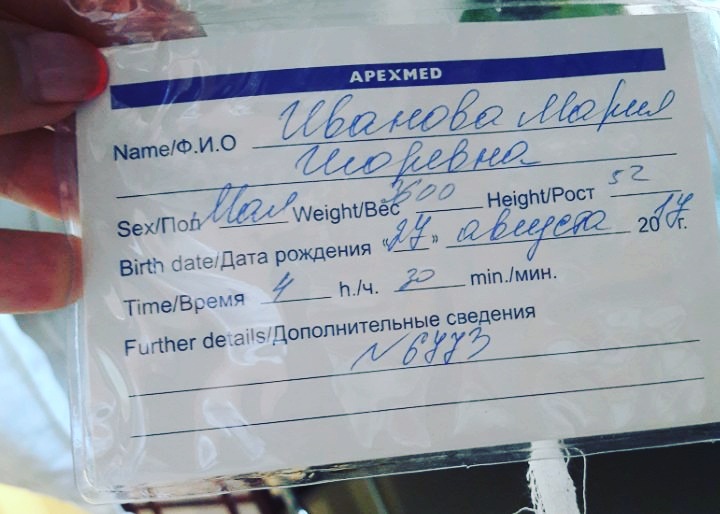 APEXMED
Name/Ф.И.О Иванова Мария
Игоревна
Sex/Пол Мал Weight/Вес 3600 Height/Рост 52
Birth date/Дата рождения «27» августа 2017г.
Time/Время 4 h./ч. 30 min./мин.
Further details/Дополнительные сведения
N 6773